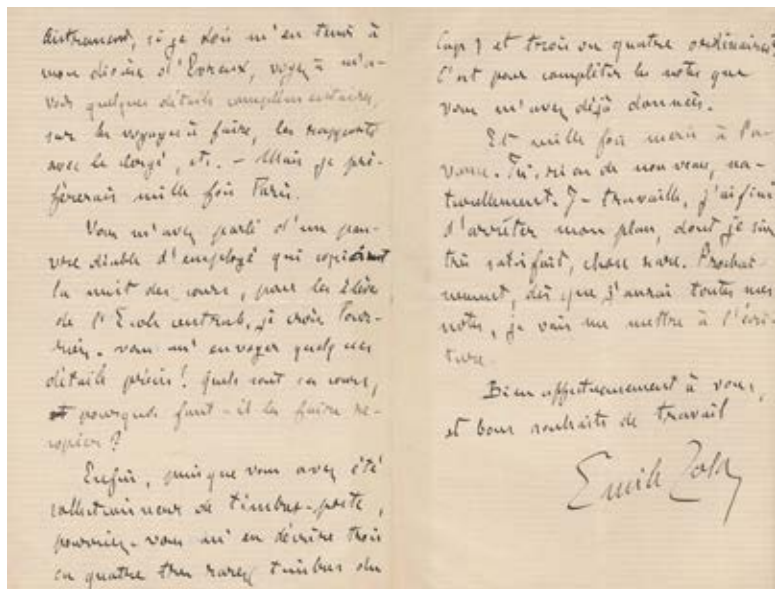 autrement, si je dois m'en tenir à
mon diocèse d'Evreux, voyez à m'a-
voir quelques détails complémentaires,
sur les voyages à faire, les rapports
avec le clergé, etc. – Mais je pré-
férerais mille fois Paris.
Vous m'avez parlé d'un pau-
vre diable d'employé qui copiait
la nuit des cours, pour les élèves
de l'Ecole centrale, je crois. Pour-
riez-vous m'envoyer quelques
détails précis? Quels sont ces cours,
et pourquoi faut-il les faire re-
copier?
Enfin, puisque vous avez été
collectionneur de timbres-poste,
pourriez-vous m'en décrire trois
ou quatre très rares, timbres du
Cap, et trois ou quatre ordinaires.
C'est pour compléter les notes que
vous m'avez déjà données.
Et mille fois merci à l'a-
vance. Ici, rien de nouveau, na-
turellement. Je travaille, j'ai fini
d'arrêter mon plan, dont je suis
très satisfait, chose rare. Prochai-
nement, dès que j'aurai toutes mes
notes, je vais me mettre à l'écri-
ture.
Bien affectueusement à vous,
et bons souhaits de travail
Emile Zola